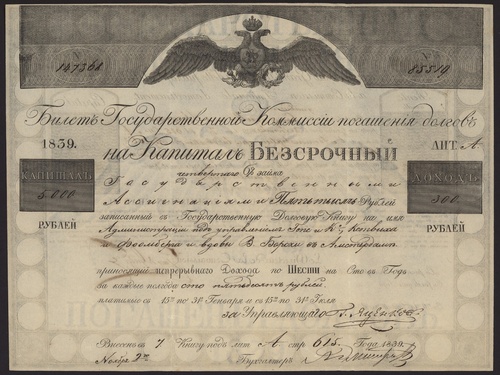 147361 85519
Билетъ Государственной Коммиссіи погашенія долговъ
1839. на Капиталъ БЕЗСРОЧНЫЙ ЛИТ. А
четвертаго % займа
КАПИТАЛЪ Государственными ДОХОДЪ
5,000 Ассигнаціями Пятьтысячъ Рублей 300
РУБЛЕЙ записанный въ Государственную Долговую Книгу на имя РУБЛЕЙ
Администраціи подъ управленіемъ Гопе и Кº, Кетвиха
и Фоомберга и вдовы В. Борски въ Амстердамѣ
приносящій непрерывнаго Дохода по ШЕСТИ на Сто въ Годъ
за каждые полгода сто пятьдесятъ рублей
платимые съ 15го по 31е Генваря и съ 15го по 31е Іюля
за Управляющаго
Внесенъ въ 7 Книгу подъ лит. А стр 615. Года 1839.
Ноября Бухгалтеръ